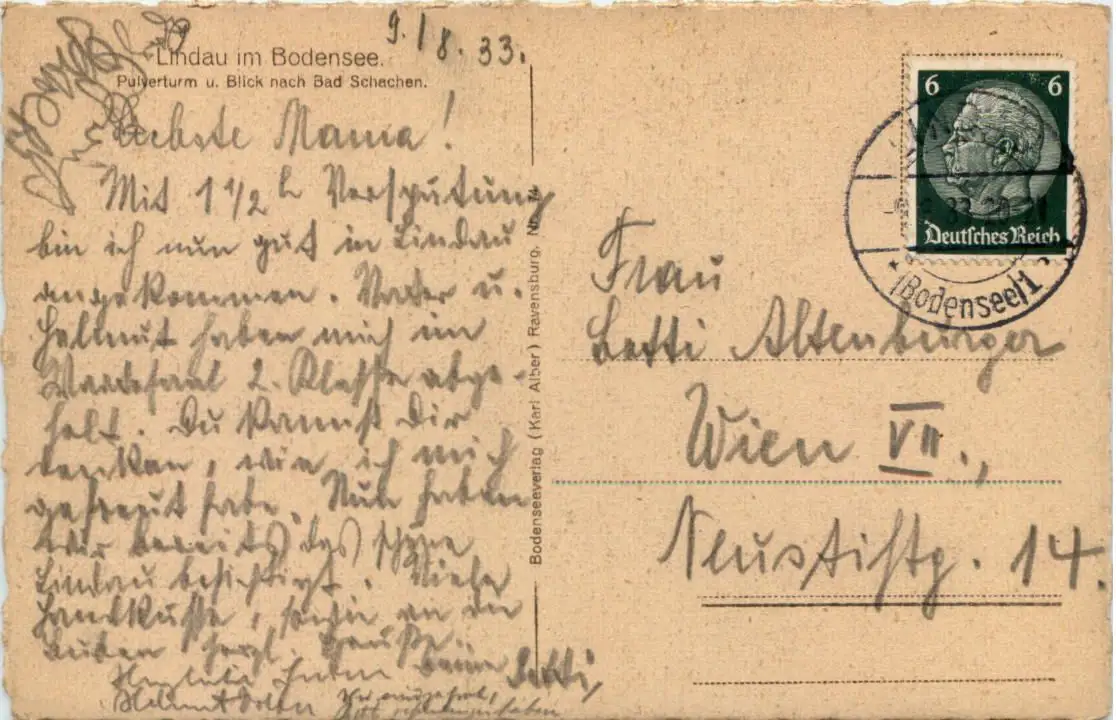 9./8.33.
Lindau im Bodensee.
Pulverturm u. Blick nach Bad Schachen.
Liebste Mama!
Mit 1 1/2 h Verspätung
bin ich nun gut in Lindau
angekommen. Vater u.
Hellmut haben mich im
Wartesaal 2. Klasse abge-
holt. Du kannst Dir
denken, wie ich mich
gefreut habe. Nun haben
wir bereits das schöne
Lindau besichtigt. Viele
Handküsse, sowie an die
Buben herzl. Grüße.
Deine Betti,
Bodenseeverlag (Karl Alber) Ravensburg.
6 6
Deutsches Reich
(Bodensee) 1
Frau
Betti Altenburger
Wien VII.,
Neustiftg. 14.